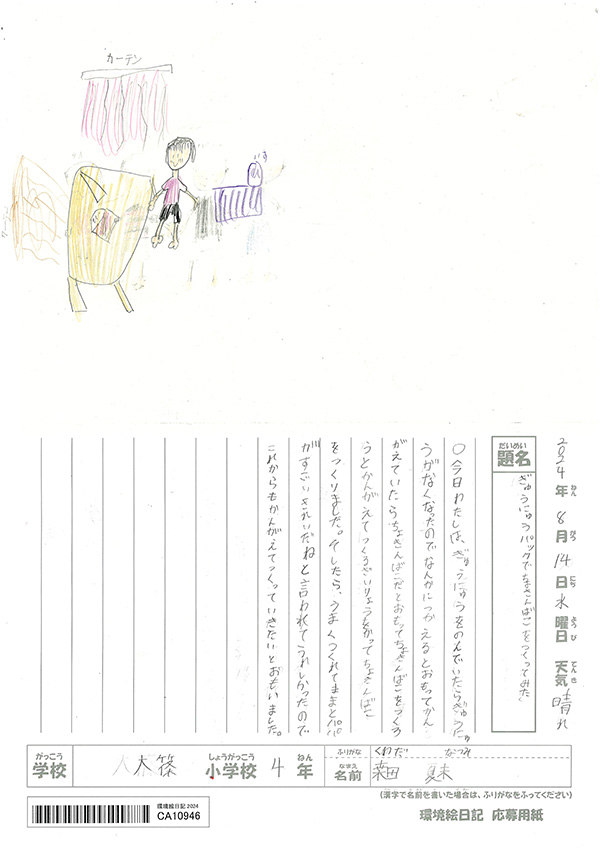 カーテン
いす
2024年 8月 14日 水曜日 天気 晴れ
ねん がつ にち ようび てんき
だいめい
題名
ぎゅうにゅうパックでちょきんばこをつくってみた
○今日わたしは、ぎゅうにゅうをのんでいたらぎゅうにゅ
うがなくなったのでなんかにつかえるとおもってかん
がえていたらちょきんばこだとおもってちょきんばこをつくろ
うとかんがえてつくるざいりょうをかってちょきんばこ
をつくりました。そしたら、うまくつくれてままとパパ
がすごいきれいだねと言われてうれしかったので
これからもかんがえてつくっていきたいとおもいました。
がっこう
学校
大篠
しょうがっこう
小学校
4
ねん
年
ふりがな
くわだ なつみ
なまえ
名前
(漢字で名前を書いた場合は、ふりがなをふってください)
環境絵日記 2024
CA10946
環境絵日記 応募用紙